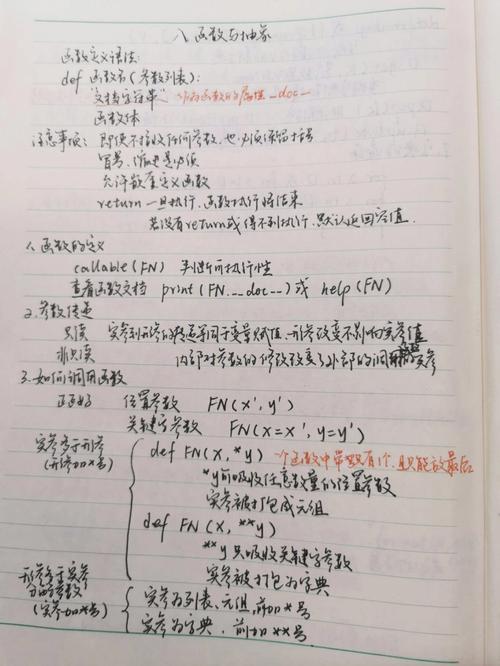 八、函数与抽象
函数定义语法:
def 函数名(参数列表):
"文档字符串" 作为函数的属性__doc__
函数体
注意事项: 即使不接收任何参数,也必须保留括号
冒号、缩进必须
允许嵌套定义函数
return一旦执行,函数执行将结束
若没有return或得不到执行,默认返回空值.
1.函数的定义
callable(FN) 判断可执行性
查看函数文档 print(FN.__doc__)或 help(FN)
2.参数传递
只读 实参到形参的传递等同于变量赋值,形参改变不影响实参值
非只读 内部对参数的修改改变了外部的实参
3.如何调用函数
正好 位置参数 FN(x',y')
关键字参数 FN(x=x',y=y')
实参多于形参
(形参加*号)
def FN(x,*y) 一个函数中带*只有1个,且只能放最后
*y可吸收任意数量的位置参数
实参被打包成元组
def FN(x,**y)
**y只吸收关键字参数
实参被打包为字典
形参多于实参
(实参加*号)
实参为列表、元组,前加*号
实参为字典,前加**号